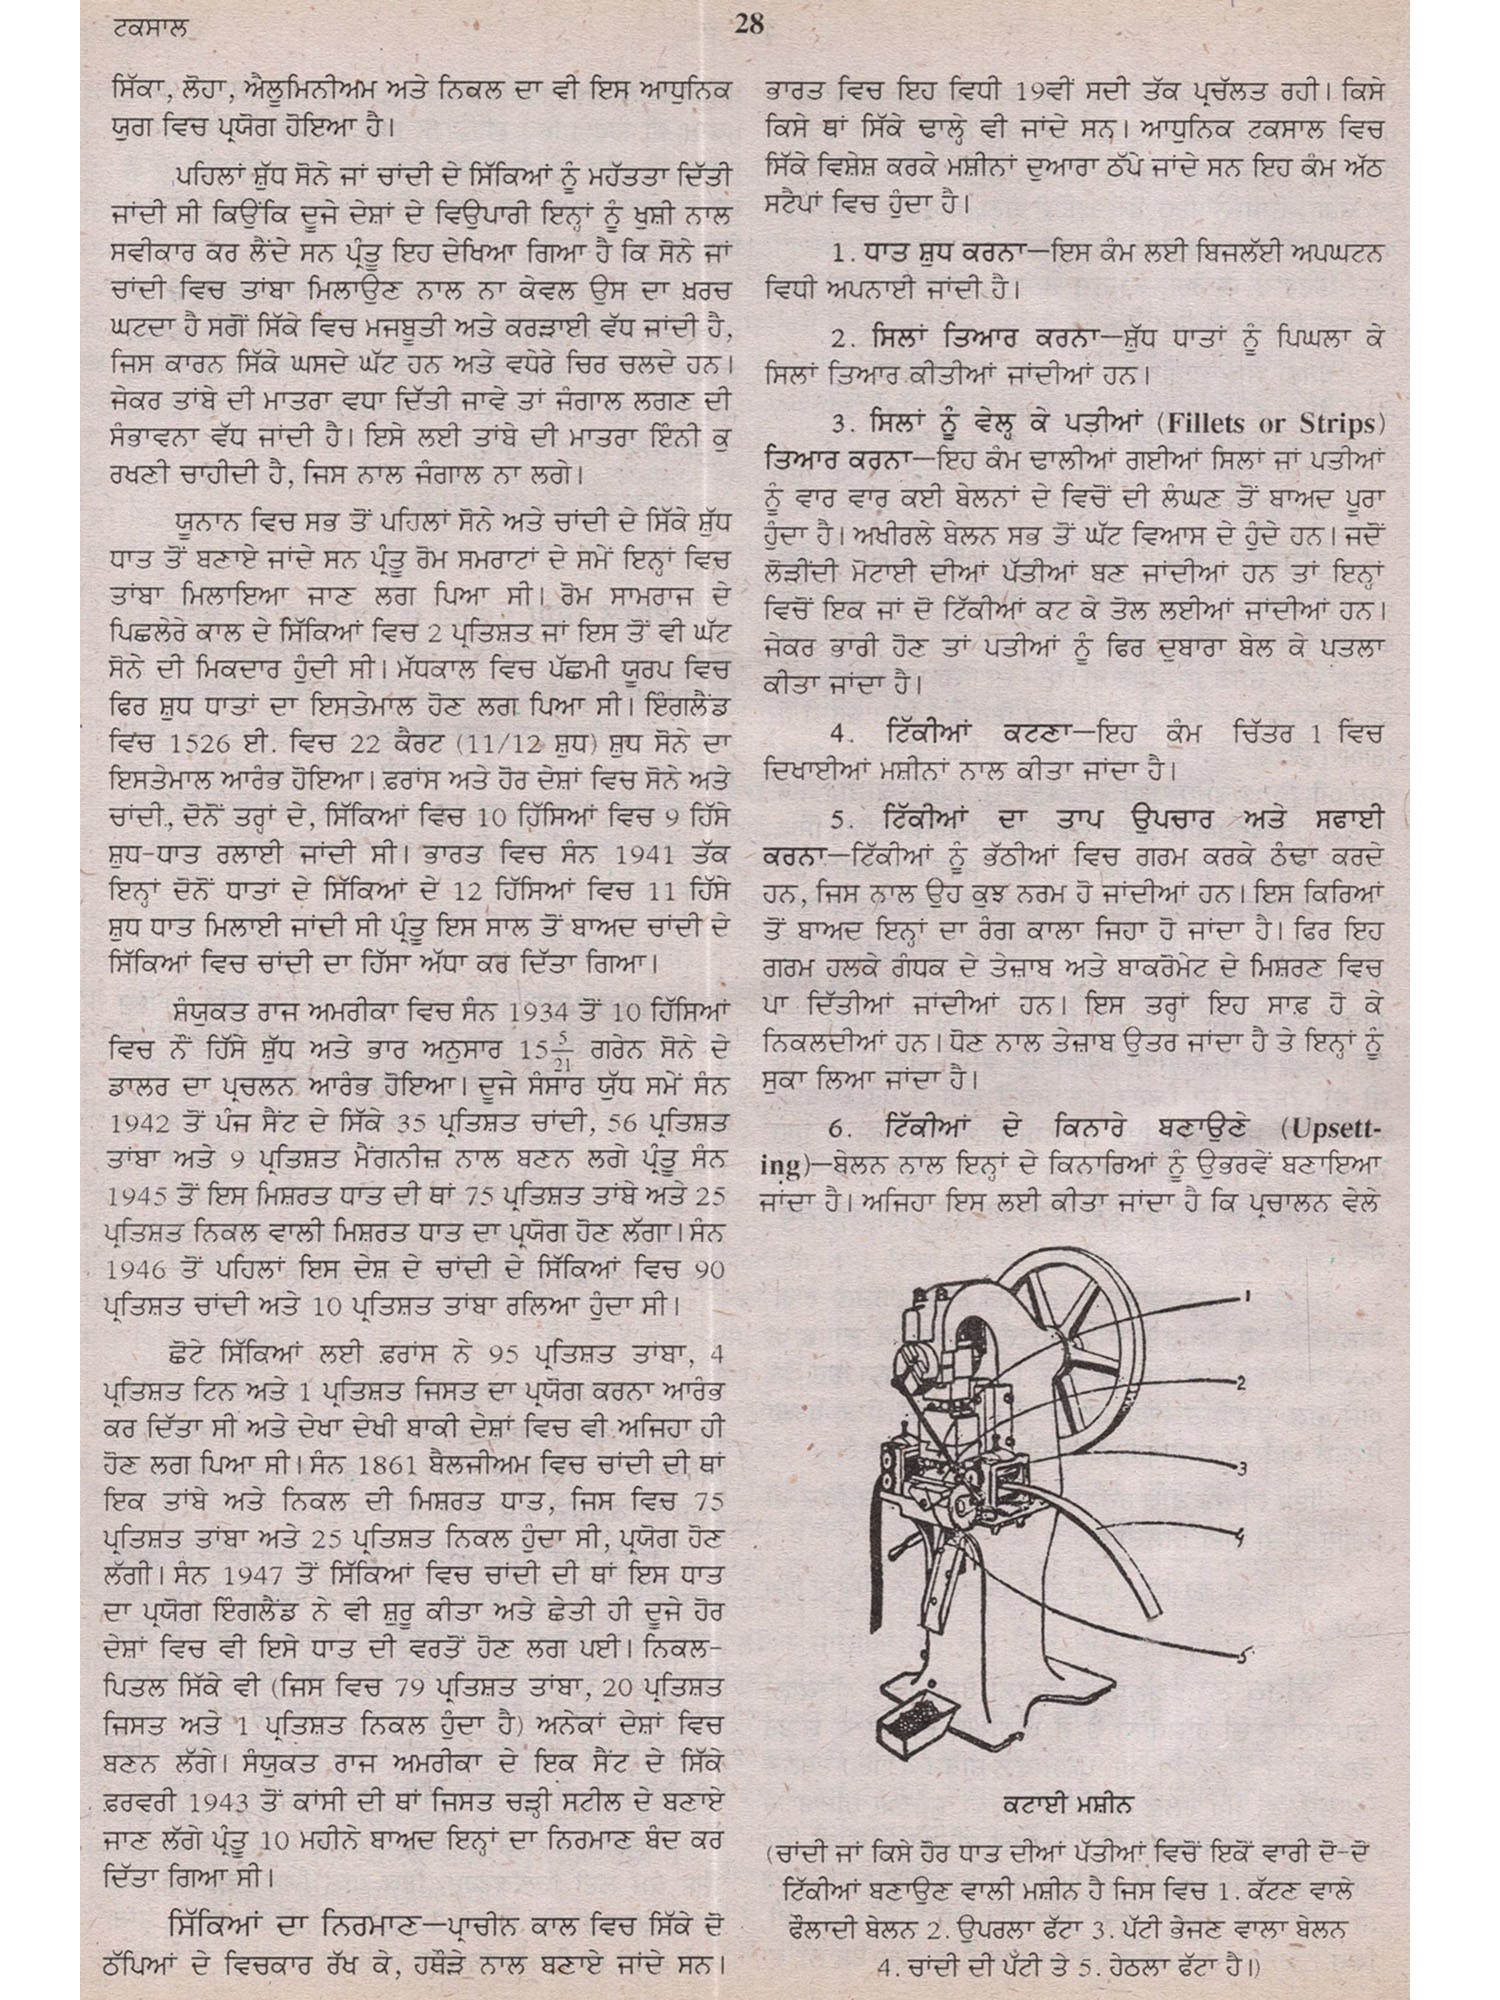 ਟਕਸਾਲ
28
ਸਿੱਕਾ, ਲੋਹਾ, ਐਲੂਮਿਨੀਅਮ ਅਤੇ ਨਿਕਲ ਦਾ ਵੀ ਇਸ ਆਧੁਨਿਕ
ਯੁਗ ਵਿਚ ਪ੍ਰਯੋਗ ਹੋਇਆ ਹੈ।
ਪਹਿਲਾਂ ਸ਼ੁੱਧ ਸੋਨੇ ਜਾਂ ਚਾਂਦੀ ਦੇ ਸਿੱਕਿਆਂ ਨੂੰ ਮਹੱਤਤਾ ਦਿੱਤੀ
ਜਾਂਦੀ ਸੀ ਕਿਉਂਕਿ ਦੂਜੇ ਦੇਸ਼ਾਂ ਦੇ ਵਿਉਪਾਰੀ ਇਨ੍ਹਾਂ ਨੂੰ ਖੁਸ਼ੀ ਨਾਲ
ਸਵੀਕਾਰ ਕਰ ਲੈਂਦੇ ਸਨ ਪ੍ਰੰਤੂ ਇਹ ਦੇਖਿਆ ਗਿਆ ਹੈ ਕਿ ਸੋਨੇ ਜਾਂ
ਚਾਂਦੀ ਵਿਚ ਤਾਂਬਾ ਮਿਲਾਉਣ ਨਾਲ ਨਾ ਕੇਵਲ ਉਸ ਦਾ ਖ਼ਰਚ
ਘਟਦਾ ਹੈ ਸਗੋਂ ਸਿੱਕੇ ਵਿਚ ਮਜਬੂਤੀ ਅਤੇ ਕਰੜਾਈ ਵੱਧ ਜਾਂਦੀ ਹੈ,
ਜਿਸ ਕਾਰਨ ਸਿੱਕੇ ਘਸਦੇ ਘੱਟ ਹਨ ਅਤੇ ਵਧੇਰੇ ਚਿਰ ਚਲਦੇ ਹਨ।
ਜੇਕਰ ਤਾਂਬੇ ਦੀ ਮਾਤਰਾ ਵਧਾ ਦਿੱਤੀ ਜਾਵੇ ਤਾਂ ਜੰਗਾਲ ਲਗਣ ਦੀ
ਸੰਭਾਵਨਾ ਵੱਧ ਜਾਂਦੀ ਹੈ। ਇਸੇ ਲਈ ਤਾਂਬੇ ਦੀ ਮਾਤਰਾ ਇੰਨੀ ਕੁ
ਰਖਣੀ ਚਾਹੀਦੀ ਹੈ, ਜਿਸ ਨਾਲ ਜੰਗਾਲ ਨਾ ਲਗੇ।
ਯੂਨਾਨ ਵਿਚ ਸਭ ਤੋਂ ਪਹਿਲਾਂ ਸੋਨੇ ਅਤੇ ਚਾਂਦੀ ਦੇ ਸਿੱਕੇ ਸ਼ੁੱਧ
ਧਾਤ ਤੋਂ ਬਣਾਏ ਜਾਂਦੇ ਸਨ ਪ੍ਰੰਤੂ ਰੋਮ ਸਮਰਾਟਾਂ ਦੇ ਸਮੇਂ ਇਨ੍ਹਾਂ ਵਿਚ
ਤਾਂਬਾ ਮਿਲਾਇਆ ਜਾਣ ਲਗ ਪਿਆ ਸੀ। ਰੋਮ ਸਾਮਰਾਜ ਦੇ
ਪਿਛਲੇਰੇ ਕਾਲ ਦੇ ਸਿੱਕਿਆਂ ਵਿਚ 2 ਪ੍ਰਤਿਸ਼ਤ ਜਾਂ ਇਸ ਤੋਂ ਵੀ ਘੱਟ
ਸੋਨੇ ਦੀ ਮਿਕਦਾਰ ਹੁੰਦੀ ਸੀ। ਮੱਧਕਾਲ ਵਿਚ ਪੱਛਮੀ ਯੂਰਪ ਵਿਚ
ਫਿਰ ਸ਼ੁਧ ਧਾਤਾਂ ਦਾ ਇਸਤੇਮਾਲ ਹੋਣ ਲਗ ਪਿਆ ਸੀ। ਇੰਗਲੈਂਡ
ਵਿਚ 1526 ਈ. ਵਿਚ 22 ਕੈਰਟ (11/12 ਸ਼ੁਧ) ਸ਼ੁਧ ਸੋਨੇ ਦਾ
ਇਸਤੇਮਾਲ ਆਰੰਭ ਹੋਇਆ। ਫ਼ਰਾਂਸ ਅਤੇ ਹੋਰ ਦੇਸ਼ਾਂ ਵਿਚ ਸੋਨੇ ਅਤੇ
ਚਾਂਦੀ, ਦੋਨੋਂ ਤਰ੍ਹਾਂ ਦੇ, ਸਿੱਕਿਆਂ ਵਿਚ 10 ਹਿੱਸਿਆਂ ਵਿਚ 9 ਹਿੱਸੇ
ਸ਼ੁਧ-ਧਾਤ ਰਲਾਈ ਜਾਂਦੀ ਸੀ। ਭਾਰਤ ਵਿਚ ਸੰਨ 1941 ਤੱਕ
ਇਨ੍ਹਾਂ ਦੋਨੋਂ ਧਾਤਾਂ ਦੇ ਸਿੱਕਿਆਂ ਦੇ 12 ਹਿੱਸਿਆਂ ਵਿਚ 11 ਹਿੱਸੇ
ਸ਼ੁਧ ਧਾਤ ਮਿਲਾਈ ਜਾਂਦੀ ਸੀ ਪ੍ਰੰਤੂ ਇਸ ਸਾਲ ਤੋਂ ਬਾਅਦ ਚਾਂਦੀ ਦੇ
ਸਿੱਕਿਆਂ ਵਿਚ ਚਾਂਦੀ ਦਾ ਹਿੱਸਾ ਅੱਧਾ ਕਰ ਦਿੱਤਾ ਗਿਆ।
ਸੰਯੁਕਤ ਰਾਜ ਅਮਰੀਕਾ ਵਿਚ ਸੰਨ 1934 ਤੋਂ 10 ਹਿੱਸਿਆਂ
ਵਿਚ ਨੌਂ ਹਿੱਸੇ ਸ਼ੁੱਧ ਅਤੇ ਭਾਰ ਅਨੁਸਾਰ 15 5/21 ਗਰੇਨ ਸੋਨੇ ਦੇ
ਡਾਲਰ ਦਾ ਪ੍ਰਚਲਨ ਆਰੰਭ ਹੋਇਆ। ਦੂਜੇ ਸੰਸਾਰ ਯੁੱਧ ਸਮੇਂ ਸੰਨ
1942 ਤੋਂ ਪੰਜ ਸੈਂਟ ਦੇ ਸਿੱਕੇ 35 ਪ੍ਰਤਿਸ਼ਤ ਚਾਂਦੀ, 56 ਪ੍ਰਤਿਸ਼ਤ
ਤਾਂਬਾ ਅਤੇ 9 ਪ੍ਰਤਿਸ਼ਤ ਮੈਂਗਨੀਜ਼ ਨਾਲ ਬਣਨ ਲਗੇ ਪ੍ਰੰਤੂ ਸੰਨ
1945 ਤੋਂ ਇਸ ਮਿਸ਼ਰਤ ਧਾਤ ਦੀ ਥਾਂ 75 ਪ੍ਰਤਿਸ਼ਤ ਤਾਂਬੇ ਅਤੇ 25
ਪ੍ਰਤਿਸ਼ਤ ਨਿਕਲ ਵਾਲੀ ਮਿਸ਼ਰਤ ਧਾਤ ਦਾ ਪ੍ਰਯੋਗ ਹੋਣ ਲੱਗਾ। ਸੰਨ
1946 ਤੋਂ ਪਹਿਲਾਂ ਇਸ ਦੇਸ਼ ਦੇ ਚਾਂਦੀ ਦੇ ਸਿੱਕਿਆਂ ਵਿਚ 90
ਪ੍ਰਤਿਸ਼ਤ ਚਾਂਦੀ ਅਤੇ 10 ਪ੍ਰਤਿਸ਼ਤ ਤਾਂਬਾ ਰਲਿਆ ਹੁੰਦਾ ਸੀ।
ਛੋਟੇ ਸਿੱਕਿਆਂ ਲਈ ਫ਼ਰਾਂਸ ਨੇ 95 ਪ੍ਰਤਿਸ਼ਤ ਤਾਂਬਾ, 4
ਪ੍ਰਤਿਸ਼ਤ ਟਿਨ ਅਤੇ 1 ਪ੍ਰਤਿਸ਼ਤ ਜਿਸਤ ਦਾ ਪ੍ਰਯੋਗ ਕਰਨਾ ਆਰੰਭ
ਕਰ ਦਿੱਤਾ ਸੀ ਅਤੇ ਦੇਖਾ ਦੇਖੀ ਬਾਕੀ ਦੇਸ਼ਾਂ ਵਿਚ ਵੀ ਅਜਿਹਾ ਹੀ
ਹੋਣ ਲਗ ਪਿਆ ਸੀ। ਸੰਨ 1861 ਬੈਲਜੀਅਮ ਵਿਚ ਚਾਂਦੀ ਦੀ ਥਾਂ
ਇਕ ਤਾਂਬੇ ਅਤੇ ਨਿਕਲ ਦੀ ਮਿਸ਼ਰਤ ਧਾਤ, ਜਿਸ ਵਿਚ 75
ਪ੍ਰਤਿਸ਼ਤ ਤਾਂਬਾ ਅਤੇ 25 ਪ੍ਰਤਿਸ਼ਤ ਨਿਕਲ ਹੁੰਦਾ ਸੀ, ਪ੍ਰਯੋਗ ਹੋਣ
ਲੱਗੀ। ਸੰਨ 1947 ਤੋਂ ਸਿੱਕਿਆਂ ਵਿਚ ਚਾਂਦੀ ਦੀ ਥਾਂ ਇਸ ਧਾਤ
ਦਾ ਪ੍ਰਯੋਗ ਇੰਗਲੈਂਡ ਨੇ ਵੀ ਸ਼ੁਰੂ ਕੀਤਾ ਅਤੇ ਛੇਤੀ ਹੀ ਦੂਜੇ ਹੋਰ
ਦੇਸ਼ਾਂ ਵਿਚ ਵੀ ਇਸੇ ਧਾਤ ਦੀ ਵਰਤੋਂ ਹੋਣ ਲਗ ਪਈ। ਨਿਕਲ-
ਪਿਤਲ ਸਿੱਕੇ ਵੀ (ਜਿਸ ਵਿਚ 79 ਪ੍ਰਤਿਸ਼ਤ ਤਾਂਬਾ, 20 ਪ੍ਰਤਿਸ਼ਤ
ਜਿਸਤ ਅਤੇ 1 ਪ੍ਰਤਿਸ਼ਤ ਨਿਕਲ ਹੁੰਦਾ ਹੈ) ਅਨੇਕਾਂ ਦੇਸ਼ਾਂ ਵਿਚ
ਬਣਨ ਲੱਗੇ। ਸੰਯੁਕਤ ਰਾਜ ਅਮਰੀਕਾ ਦੇ ਇਕ ਸੈਂਟ ਦੇ ਸਿੱਕੇ
ਫ਼ਰਵਰੀ 1943 ਤੋਂ ਕਾਂਸੀ ਦੀ ਥਾਂ ਜਿਸਤ ਚੜ੍ਹੀ ਸਟੀਲ ਦੇ ਬਣਾਏ
ਜਾਣ ਲੱਗੇ ਪ੍ਰੰਤੂ 10 ਮਹੀਨੇ ਬਾਅਦ ਇਨ੍ਹਾਂ ਦਾ ਨਿਰਮਾਣ ਬੰਦ ਕਰ
ਦਿੱਤਾ ਗਿਆ ਸੀ।
ਸਿੱਕਿਆਂ ਦਾ ਨਿਰਮਾਣ—ਪ੍ਰਾਚੀਨ ਕਾਲ ਵਿਚ ਸਿੱਕੇ ਦੋ
ਠੱਪਿਆਂ ਦੇ ਵਿਚਕਾਰ ਰੱਖ ਕੇ, ਹਥੌੜੇ ਨਾਲ ਬਣਾਏ ਜਾਂਦੇ ਸਨ।
ਭਾਰਤ ਵਿਚ ਇਹ ਵਿਧੀ 19ਵੀਂ ਸਦੀ ਤੱਕ ਪ੍ਰਚੱਲਤ ਰਹੀ। ਕਿਸੇ
ਕਿਸੇ ਥਾਂ ਸਿੱਕੇ ਢਾਲ੍ਹੇ ਵੀ ਜਾਂਦੇ ਸਨ। ਆਧੁਨਿਕ ਟਕਸਾਲ ਵਿਚ
ਸਿੱਕੇ ਵਿਸ਼ੇਸ਼ ਕਰਕੇ ਮਸ਼ੀਨਾਂ ਦੁਆਰਾ ਠੱਪੇ ਜਾਂਦੇ ਸਨ ਇਹ ਕੰਮ ਅੱਠ
ਸਟੈਪਾਂ ਵਿਚ ਹੁੰਦਾ ਹੈ।
1. ਧਾਤ ਸ਼ੁਧ ਕਰਨਾ—ਇਸ ਕੰਮ ਲਈ ਬਿਜਲੱਈ ਅਪਘਟਨ
ਵਿਧੀ ਅਪਨਾਈ ਜਾਂਦੀ ਹੈ।
2. ਸਿਲਾਂ ਤਿਆਰ ਕਰਨਾ—ਸ਼ੁੱਧ ਧਾਤਾਂ ਨੂੰ ਪਿਘਲਾ ਕੇ
ਸਿਲਾਂ ਤਿਆਰ ਕੀਤੀਆਂ ਜਾਂਦੀਆਂ ਹਨ।
3. ਸਿਲਾਂ ਨੂੰ ਵੇਲ੍ਹ ਕੇ ਪਤੀਆਂ (Fillets or Strips)
ਤਿਆਰ ਕਰਨਾ—ਇਹ ਕੰਮ ਢਾਲੀਆਂ ਗਈਆਂ ਸਿਲਾਂ ਜਾਂ ਪਤੀਆਂ
ਨੂੰ ਵਾਰ ਵਾਰ ਕਈ ਬੇਲਨਾਂ ਦੇ ਵਿਚੋਂ ਦੀ ਲੰਘਣ ਤੋਂ ਬਾਅਦ ਪੂਰਾ
ਹੁੰਦਾ ਹੈ। ਅਖੀਰਲੇ ਬੇਲਨ ਸਭ ਤੋਂ ਘੱਟ ਵਿਆਸ ਦੇ ਹੁੰਦੇ ਹਨ। ਜਦੋਂ
ਲੋੜੀਂਦੀ ਮੋਟਾਈ ਦੀਆਂ ਪੱਤੀਆਂ ਬਣ ਜਾਂਦੀਆਂ ਹਨ ਤਾਂ ਇਨ੍ਹਾਂ
ਵਿਚੋਂ ਇਕ ਜਾਂ ਦੋ ਟਿੱਕੀਆਂ ਕਟ ਕੇ ਤੋਲ ਲਈਆਂ ਜਾਂਦੀਆਂ ਹਨ।
ਜੇਕਰ ਭਾਰੀ ਹੋਣ ਤਾਂ ਪਤੀਆਂ ਨੂੰ ਫਿਰ ਦੁਬਾਰਾ ਬੇਲ ਕੇ ਪਤਲਾ
ਕੀਤਾ ਜਾਂਦਾ ਹੈ।
4. ਟਿੱਕੀਆਂ ਕਟਣਾ—ਇਹ ਕੰਮ ਚਿੱਤਰ 1 ਵਿਚ
ਦਿਖਾਈਆਂ ਮਸ਼ੀਨਾਂ ਨਾਲ ਕੀਤਾ ਜਾਂਦਾ ਹੈ।
5. ਟਿੱਕੀਆਂ ਦਾ ਤਾਪ ਉਪਚਾਰ ਅਤੇ ਸਫਾਈ
ਕਰਨਾ—ਟਿੱਕੀਆਂ ਨੂੰ ਭੱਠੀਆਂ ਵਿਚ ਗਰਮ ਕਰਕੇ ਠੰਢਾ ਕਰਦੇ
ਹਨ, ਜਿਸ ਨਾਲ ਉਹ ਕੁਝ ਨਰਮ ਹੋ ਜਾਂਦੀਆਂ ਹਨ। ਇਸ ਕਿਰਿਆਂ
ਤੋਂ ਬਾਅਦ ਇਨ੍ਹਾਂ ਦਾ ਰੰਗ ਕਾਲਾ ਜਿਹਾ ਹੋ ਜਾਂਦਾ ਹੈ। ਫਿਰ ਇਹ
ਗਰਮ ਹਲਕੇ ਗੰਧਕ ਦੇ ਤੇਜ਼ਾਬ ਅਤੇ ਬਾਕਰੋਮੇਟ ਦੇ ਮਿਸ਼ਰਣ ਵਿਚ
ਪਾ ਦਿੱਤੀਆਂ ਜਾਂਦੀਆਂ ਹਨ। ਇਸ ਤਰ੍ਹਾਂ ਇਹ ਸਾਫ਼ ਹੋ ਕੇ
ਨਿਕਲਦੀਆਂ ਹਨ। ਧੋਣ ਨਾਲ ਤੇਜ਼ਾਬ ਉਤਰ ਜਾਂਦਾ ਹੈ ਤੇ ਇਨ੍ਹਾਂ ਨੂੰ
ਸੁਕਾ ਲਿਆ ਜਾਂਦਾ ਹੈ।
6. ਟਿੱਕੀਆਂ ਦੇ ਕਿਨਾਰੇ ਬਣਾਉਣੇ (Upsett-
ing)—ਬੇਲਨ ਨਾਲ ਇਨ੍ਹਾਂ ਦੇ ਕਿਨਾਰਿਆਂ ਨੂੰ ਉਭਰਵੇਂ ਬਣਾਇਆ
ਜਾਂਦਾ ਹੈ। ਅਜਿਹਾ ਇਸ ਲਈ ਕੀਤਾ ਜਾਂਦਾ ਹੈ ਕਿ ਪ੍ਰਚਾਲਨ ਵੇਲੇ
1
2
3
4
5
ਕਟਾਈ ਮਸ਼ੀਨ
(ਚਾਂਦੀ ਜਾਂ ਕਿਸੇ ਹੋਰ ਧਾਤ ਦੀਆਂ ਪੱਤੀਆਂ ਵਿਚੋਂ ਇਕੋਂ ਵਾਰੀ ਦੋ-ਦੋਂ
ਟਿੱਕੀਆਂ ਬਣਾਉਣ ਵਾਲੀ ਮਸ਼ੀਨ ਹੈ ਜਿਸ ਵਿਚ 1. ਕੱਟਣ ਵਾਲੇ
ਫੌਲਾਦੀ ਬੇਲਨ 2. ਉਪਰਲਾ ਫੱਟਾ 3. ਪੱਟੀ ਭੇਜਣ ਵਾਲਾ ਬੇਲਨ
4. ਚਾਂਦੀ ਦੀ ਪੱਟੀ ਤੇ 5. ਹੇਠਲਾ ਫੱਟਾ ਹੈ।)